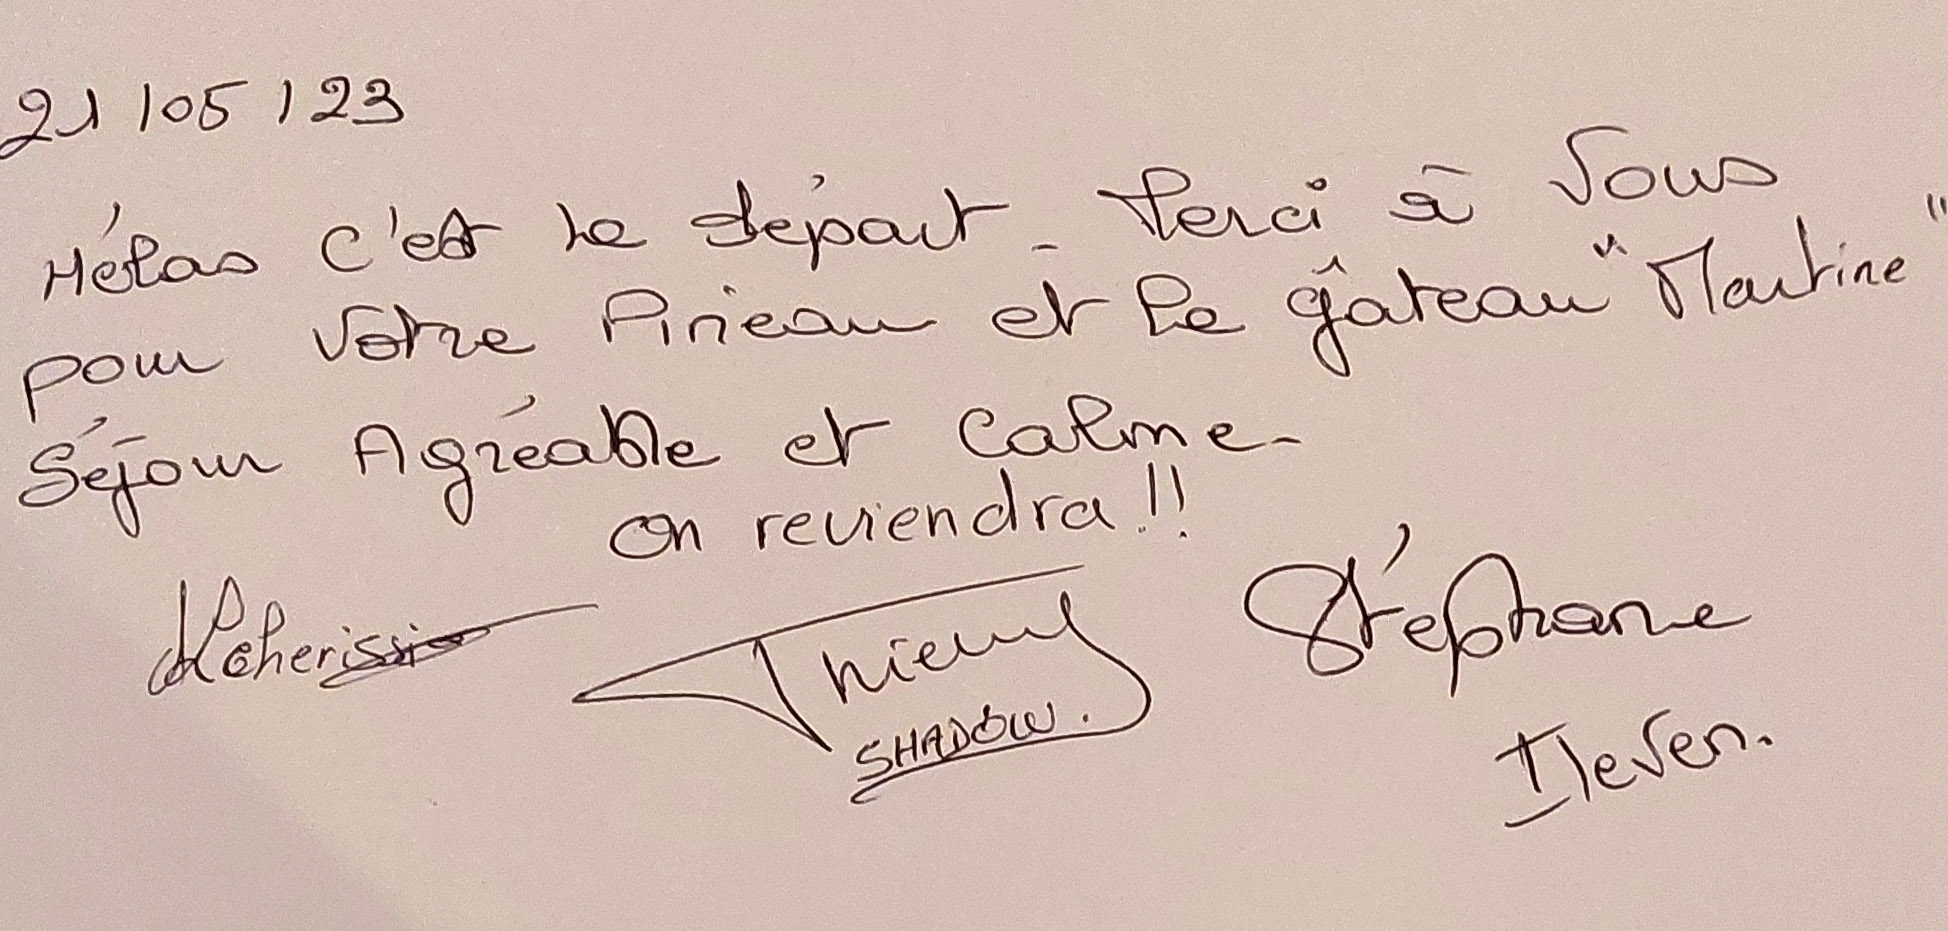 21/05/23
Hélas c'est le départ. Merci à Vous
pour Votre Pineau et le gâteau "Martine"
Séjour Agréable et Calme.
on reviendra!!
Thierry
SHADOW.
Stéphane